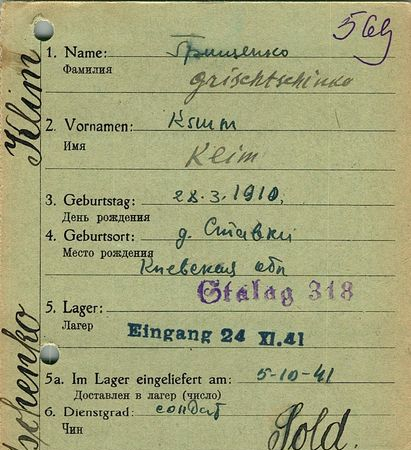 569
1. Name: Грищенко
Фамилия grischtschinko
2. Vornamen: Клим
Имя Klim
3. Geburtstag: 28.3.1910.
День рождения
4. Geburtsort: д. Ставки
Место рождения Киевская обл
Stalag 318
5. Lager:
Лагер Eingang 24 XI.41
5a. Im Lager eingeliefert am: 5-10-41
Доставлен в лагер (число)
6. Dienstgrad: солдат
Чин Sold.
Klim
schenko